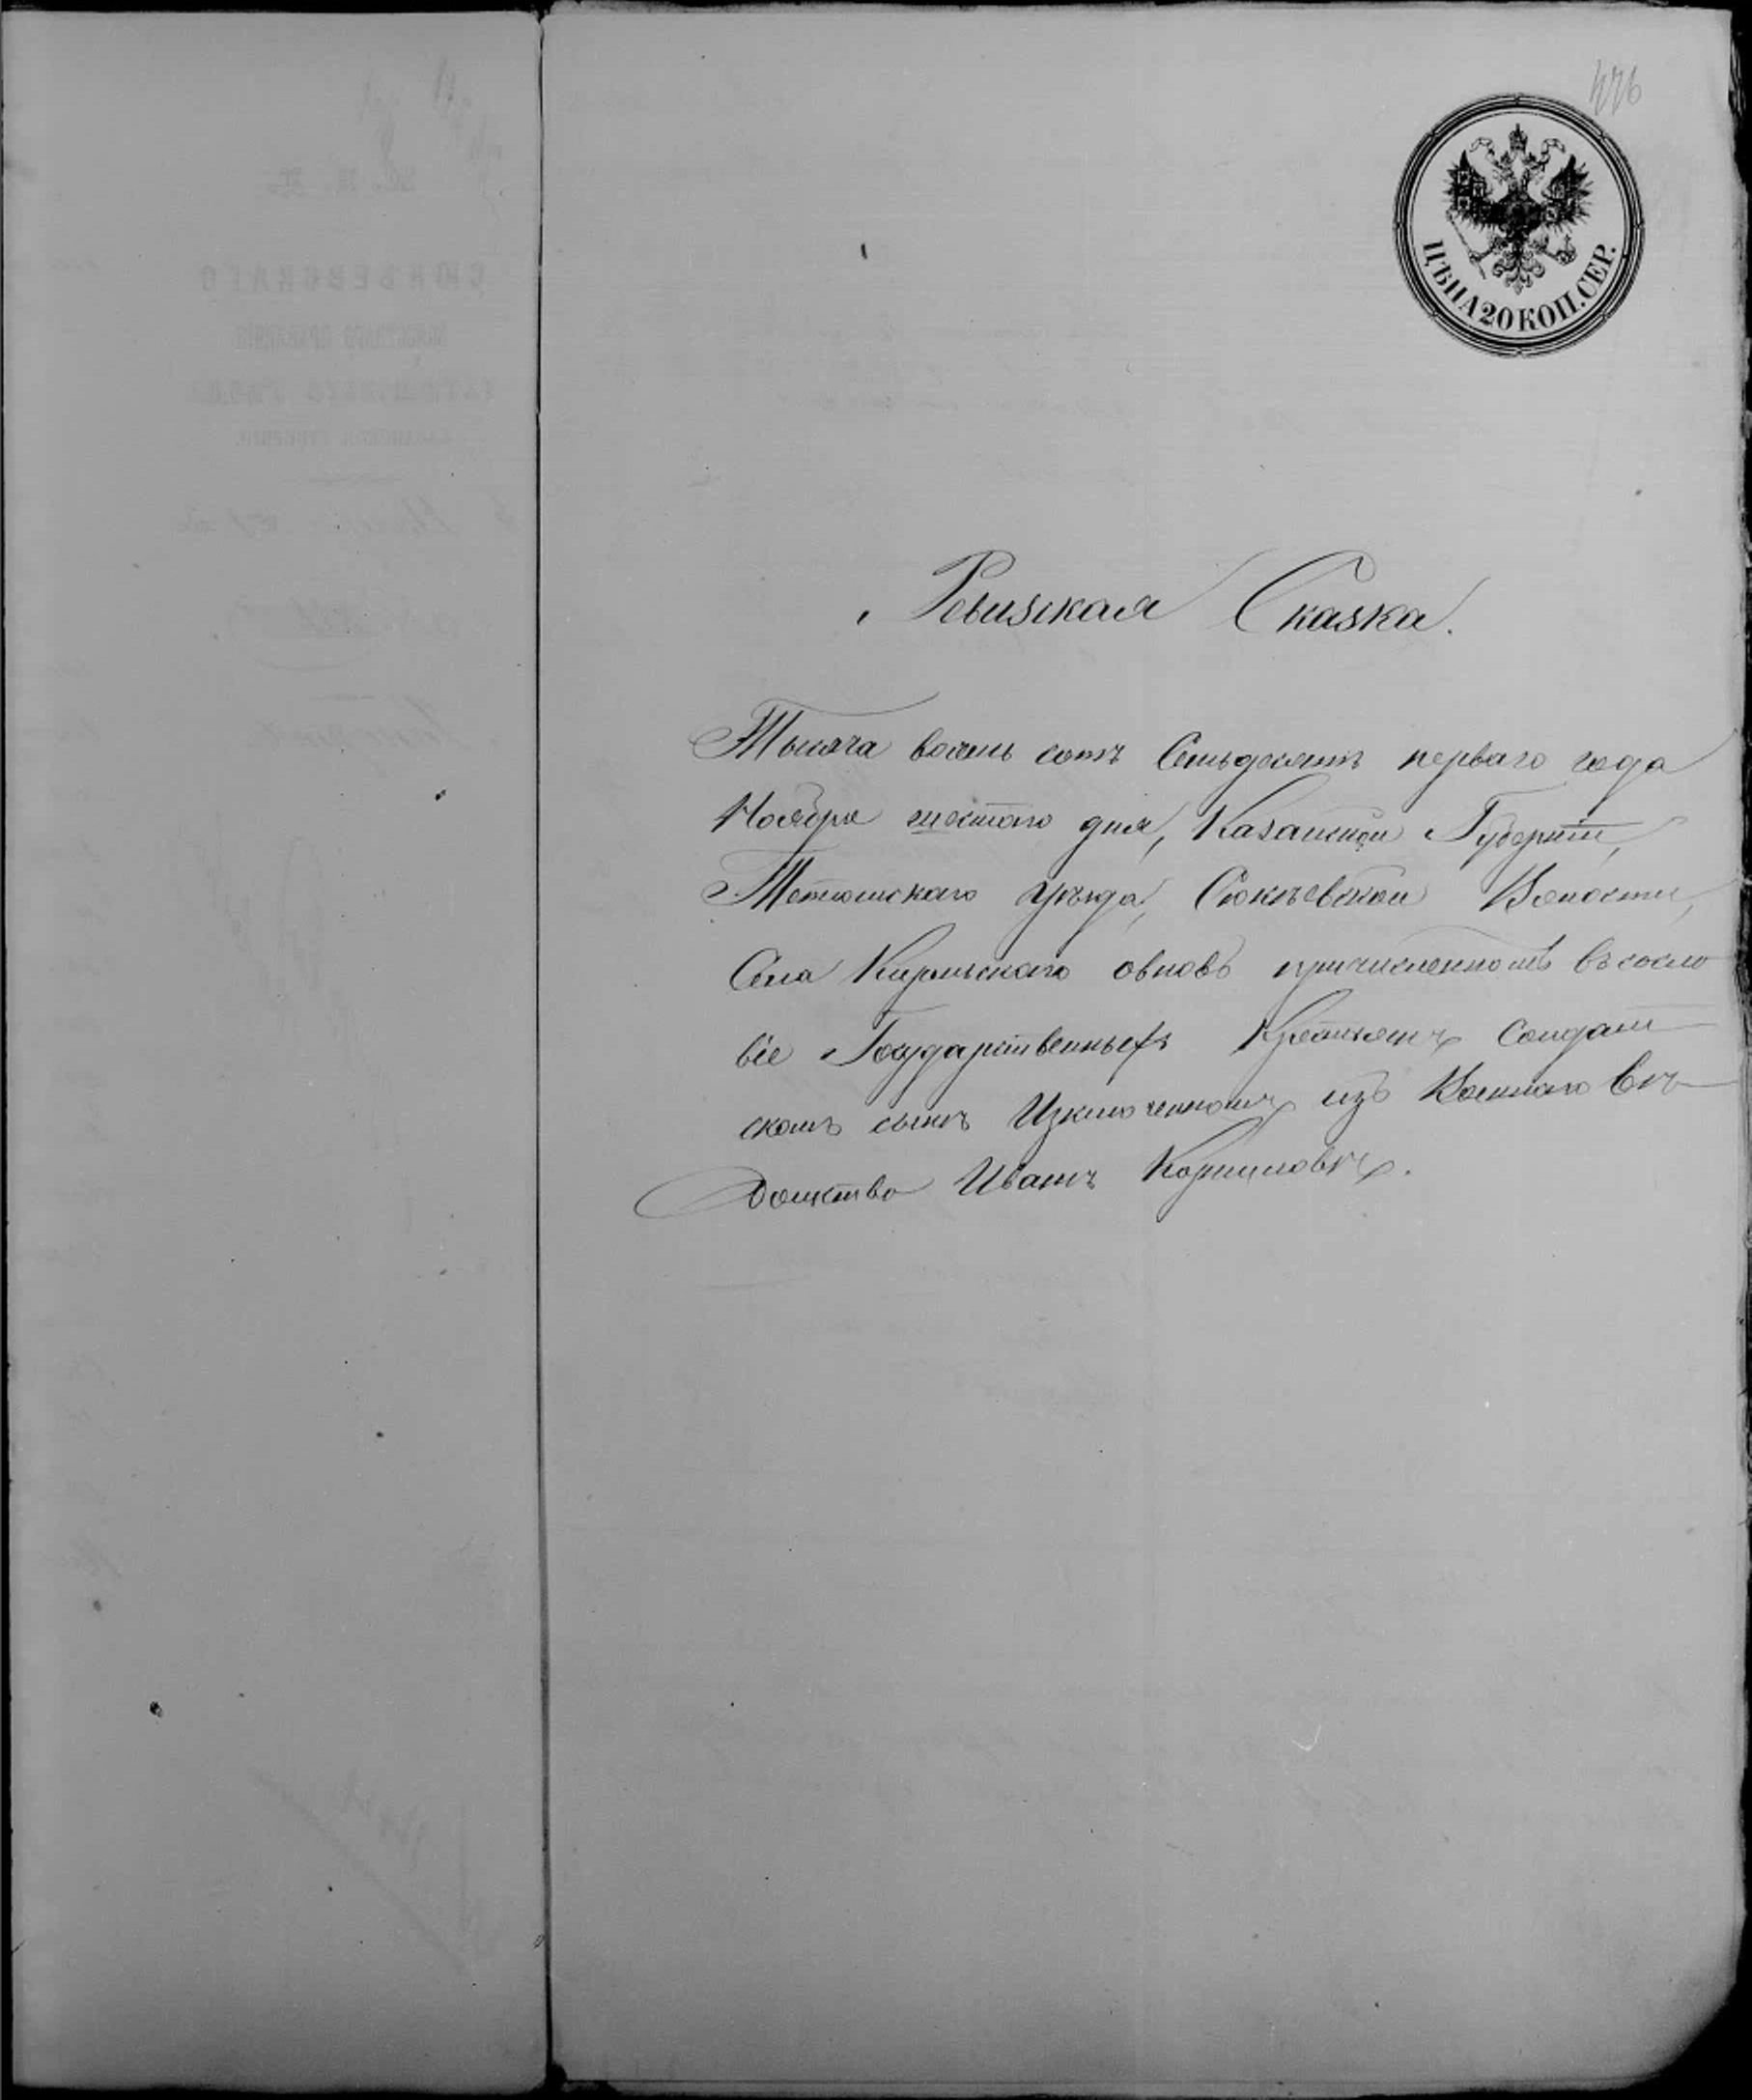 476
ЦѢНА 20 КОП. СЕР.
Ревизская Сказка.
Тысяча восемь сотъ Семьдесятъ перваго года
Ноября шестаго дня, Казанской Губерніи,
Тетюшскаго уѣзда, Сюкѣевской Волости,
Села Кирельскаго овновь причисленномъ въ сосло
віе Государственныхъ Крестьянъ Солдат
скомъ сынѣ Изключенномъ изъ Военнаго Вѣ
домства Иванѣ Корниловѣ.